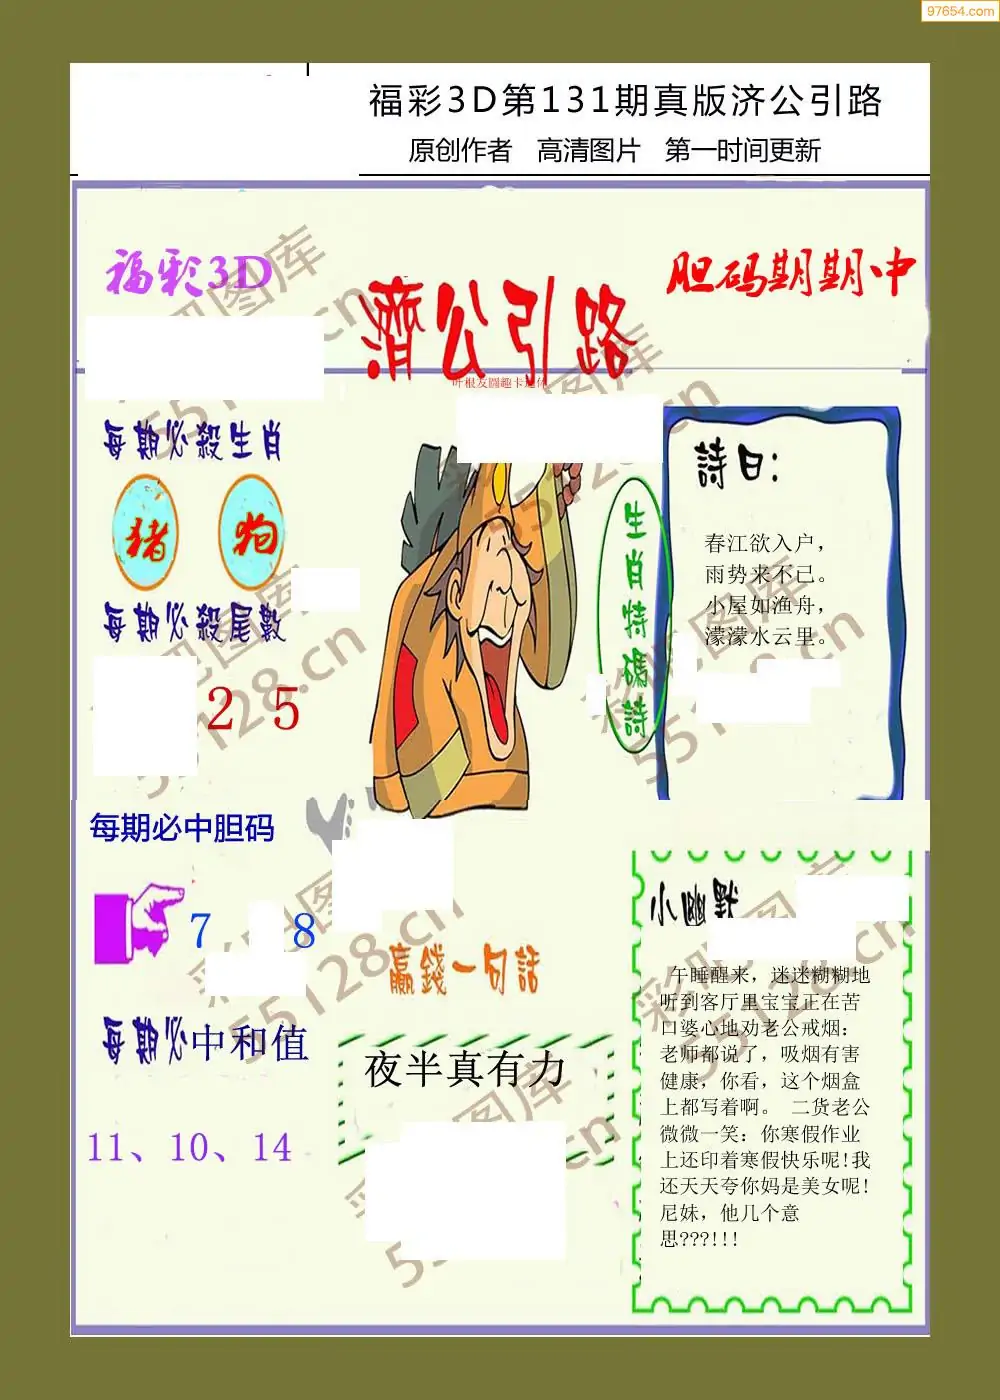 97654.com
福彩3D第131期真版济公引路
原创作者 高清图片 第一时间更新
福彩3D
濟公引路
胆码期期中
叶根友圆趣卡通体
每期必殺生肖
猪 狗
每期必殺尾數
2 5
生肖特碼詩
詩曰:
春江欲入户，
雨势来不已。
小屋如渔舟，
濛濛水云里。
每期必中胆码
7 8
每期必中和值
11、10、14
赢錢一句話
夜半真有力
小幽默
午睡醒来，迷迷糊糊地
听到客厅里宝宝正在苦
口婆心地劝老公戒烟：
老师都说了，吸烟有害
健康，你看，这个烟盒
上都写着啊。 二货老公
微微一笑：你寒假作业
上还印着寒假快乐呢!我
还天天夸你妈是美女呢!
尼妹，他几个意
思???!!!
彩吧图库
55128.cn